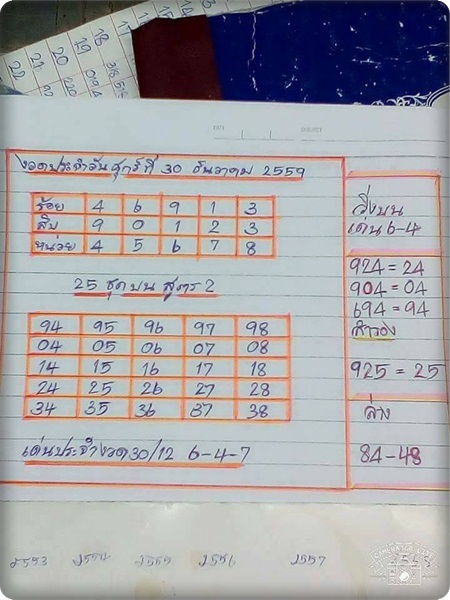 22 21 20 19 18
งวดประจำวันศุกร์ที่ 30 ธันวาคม 2559
ร้อย 4 6 9 1 3
สิบ 9 0 1 2 3
หน่วย 4 5 6 7 8
25 ชุดบน สูตร 2
94 95 96 97 98
04 05 06 07 08
14 15 16 17 18
24 25 26 27 28
34 35 36 37 38
เด่นประจำงวด 30/12 6-4-7
วิ่งบน
เด่น 6-4
924 = 24
904 = 04
694 = 94
สำรอง
925 = 25
ล่าง
84-48
2553 2554 2555 2556 2557